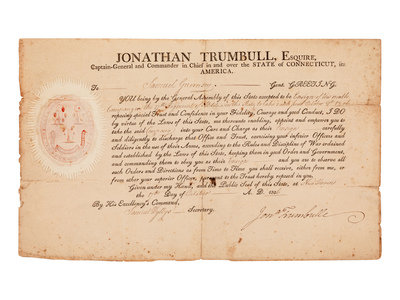 JONATHAN TRUMBULL, ESQUIRE,
Captain-General and Commander in Chief in and over the STATE OF CONNECTICUT, in
AMERICA.
To Samuel Gent. GREETING.
YOU being by the General Assembly of this State accepted to be Ensign of
Company in the Regiment
reposing special Trust and Confidence in your Fidelity, Courage and good Conduct, I DO
by virtue of the Laws of this State, me thereunto enabling, appoint and impower you to
take the said Company into your Care and Charge as their Ensign carefully
and diligently to discharge that Office and Trust, exercising your inferior Officers and
Soldiers in the use of their Arms, according to the Rules and Discipline of War ordained
and established by the Laws of this State, keeping them in good Order and Government,
and commanding them to obey you as their Ensign and you are to observe all
such Orders and Directions as from Time to Time you shall receive, either from me, or
from other your superior Officer, pursuant to the Trust hereby reposed in you.
Given under my Hand, and the Public Seal of this State, at
the Day of A. D.
By His Excellency's Command,
Secretary.
Jonth Trumbull